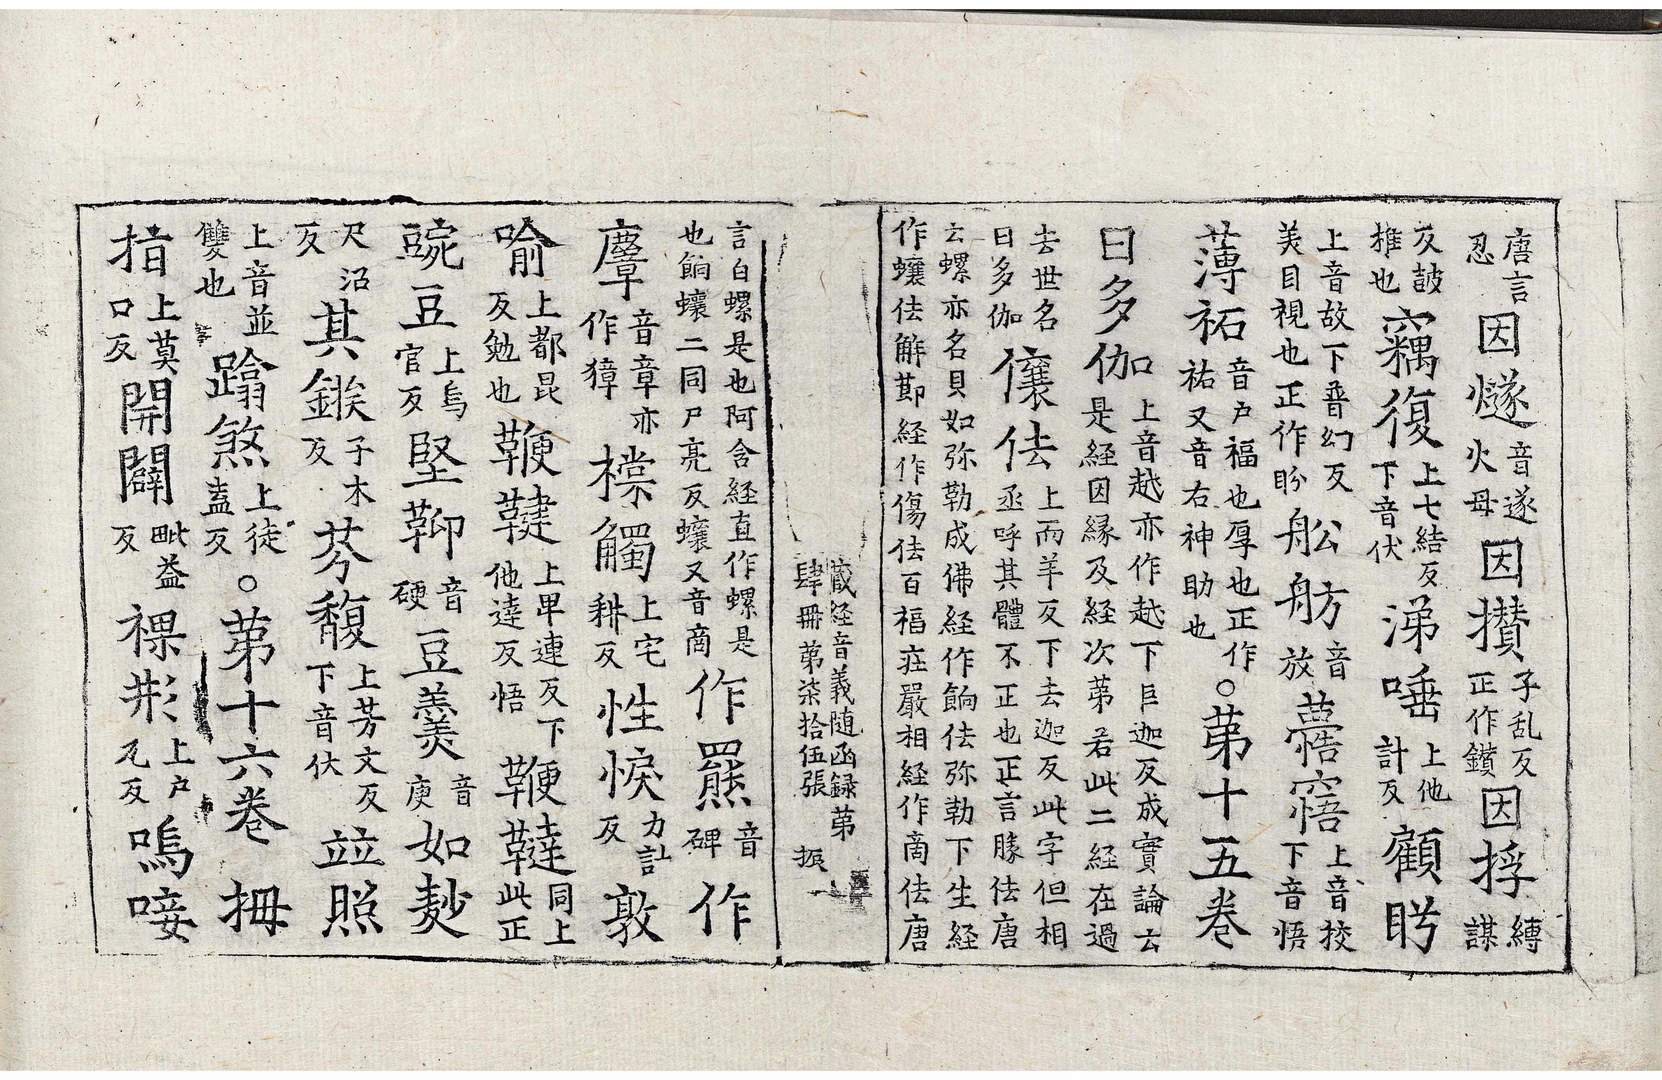 唐言忍因燧音遂火母因攅子乱反正作鑚因捊縛謀
反詖推也竊復上七結反下音伏涕唾上他計反顧眄
上音故下普幻反美目視也正作盼舩舫音放寤上音挍下音悟
薄祐音户福也厚也正作祐又音右神助也○苐十五卷
曰多伽上音越亦作越下巨迦反成實論云是経因縁及経次苐若此二経在過
去世名曰多伽儴佉上而羊反下去迦反此字但相丞呼其體不正也正言勝佉唐
云螺亦名貝如弥勒成佛経作餉佉弥勒下生経作蠰佉解莭経作傷佉百福庄嚴相経作啇佉唐
藏経音義随函録苐肆冊苐柒拾伍張 振
言白螺是也阿含経直作螺是也餉蠰二同尸亮反蠰又音啇作羆音碑作
麞音章亦作獐樘觸上宅耕反性悷力計反敦
喻上都昆反勉也鞕鞬上甲連反下他達反悟鞕鞑同上此正
豌豆上烏官反堅鞕音硬豆羹音庚如麨
尺沼反其鏃子木反芬馥上芳文反下音伏竝照
上音並雙也蹹煞上徒盍反○苐十六卷拇
指上莫口反開闢毗益反裸形上户瓦反嗚㗱